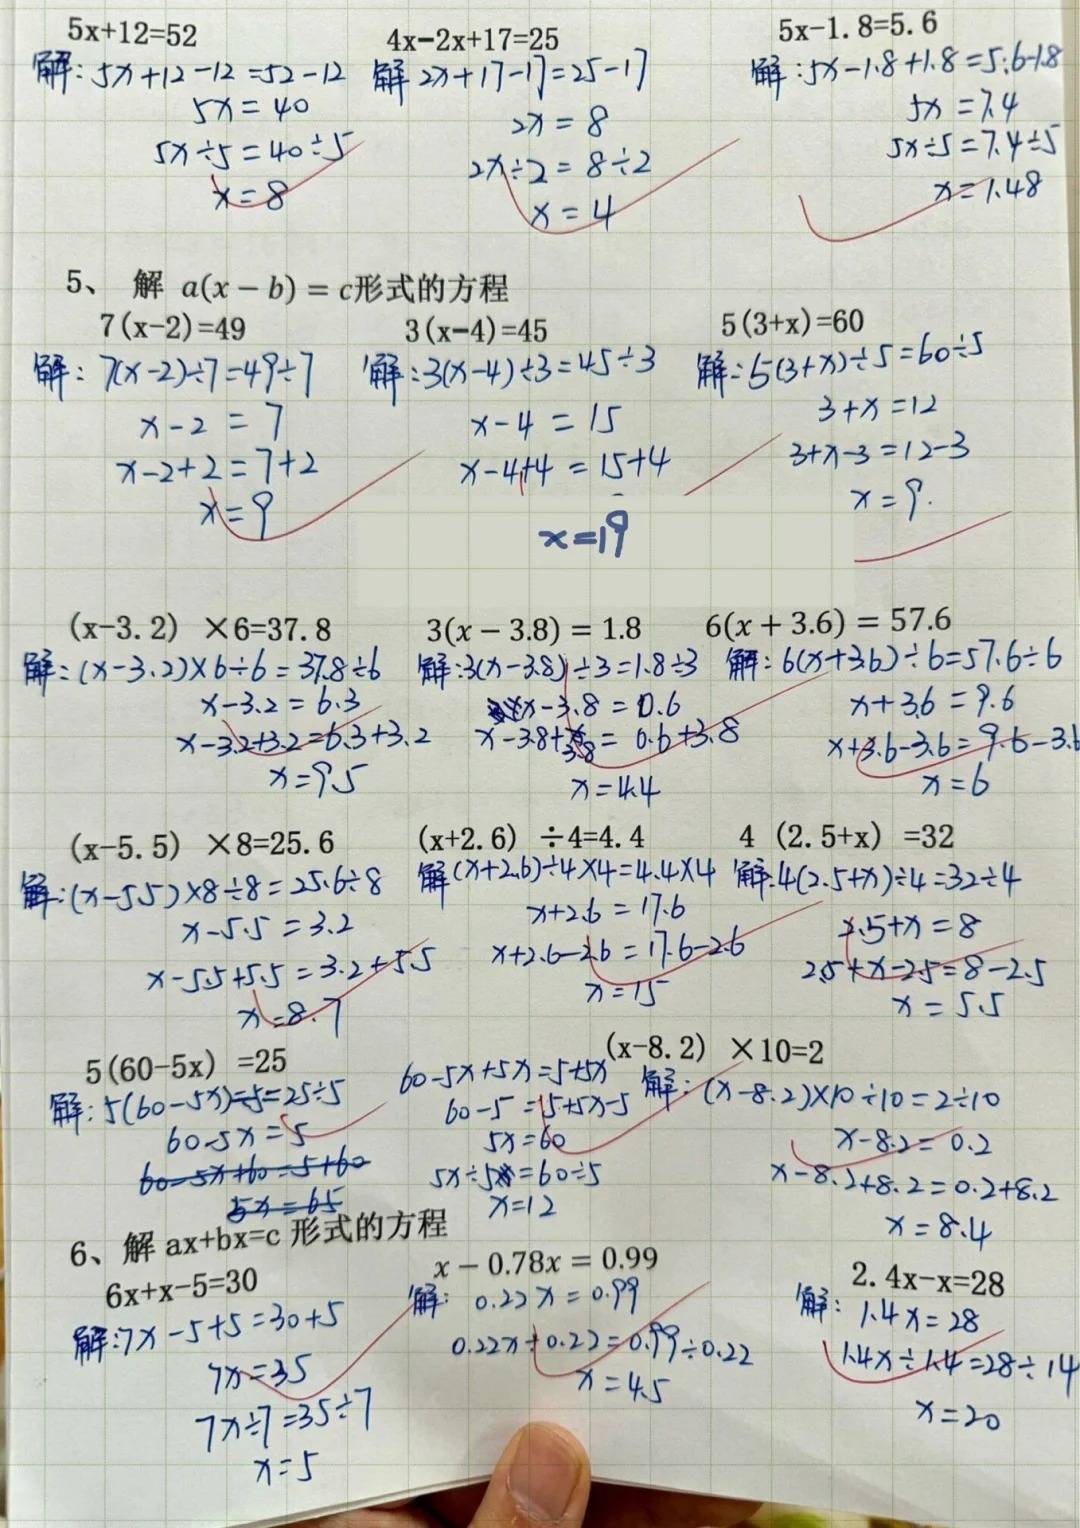 5x+12=52
解: 5x+12-12=52-12
5x=40
5x÷5=40÷5
x=8
4x-2x+17=25
解 2x+17-17=25-17
2x=8
2x÷2=8÷2
x=4
5x-1.8=5.6
解:5x-1.8+1.8=5.6-1.8
5x=7.4
5x÷5=7.4÷5
x=1.48
5、 解 a(x-b)=c形式的方程
7(x-2)=49
解: 7(x-2)÷7=49÷7
x-2=7
x-2+2=7+2
x=9
3(x-4)=45
解:3(x-4)÷3=45÷3
x-4=15
x-4+4=15+4
x=19
5(3+x)=60
解:5(3+x)÷5=60÷5
3+x=12
3+x-3=12-3
x=9.
(x-3.2) ×6=37.8
解:(x-3.2)×6÷6=37.8÷6
x-3.2=6.3
x-3.2+3.2=6.3+3.2
x=9.5
3(x-3.8)=1.8
解:3(x-3.8)÷3=1.8÷3
x-3.8=0.6
x-3.8+3.8=0.6+3.8
x=4.4
6(x+3.6)=57.6
解:6(x+3.6)÷6=57.6÷6
x+3.6=9.6
x+3.6-3.6=9.6-3.6
x=6
(x-5.5) ×8=25.6
解:(x-5.5)×8÷8=25.6÷8
x-5.5=3.2
x-5.5+5.5=3.2+5.5
x=8.7
(x+2.6) ÷4=4.4
解(x+2.6)÷4×4=4.4×4
x+2.6=17.6
x+2.6-2.6=17.6-2.6
x=15
4 (2.5+x) =32
解:4(2.5+x)÷4=32÷4
2.5+x=8
2.5+x-2.5=8-2.5
x=5.5
5(60-5x) =25
解:5(60-5x)÷5=25÷5
60-5x=5
60-5x+60=5+60
5x=65
60-5x+5x=5+5x
60-5=5+5x-5
5x=60
5x÷5=60÷5
x=12
(x-8.2) ×10=2
解:(x-8.2)×10÷10=2÷10
x-8.2=0.2
x-8.2+8.2=0.2+8.2
x=8.4
6、解 ax+bx=c 形式的方程
6x+x-5=30
解:7x-5+5=30+5
7x=35
7x÷7=35÷7
x=5
x-0.78x=0.99
解: 0.22x=0.99
0.22x÷0.22=0.99÷0.22
x=4.5
2.4x-x=28
解: 1.4x=28
1.4x÷1.4=28÷14
x=20